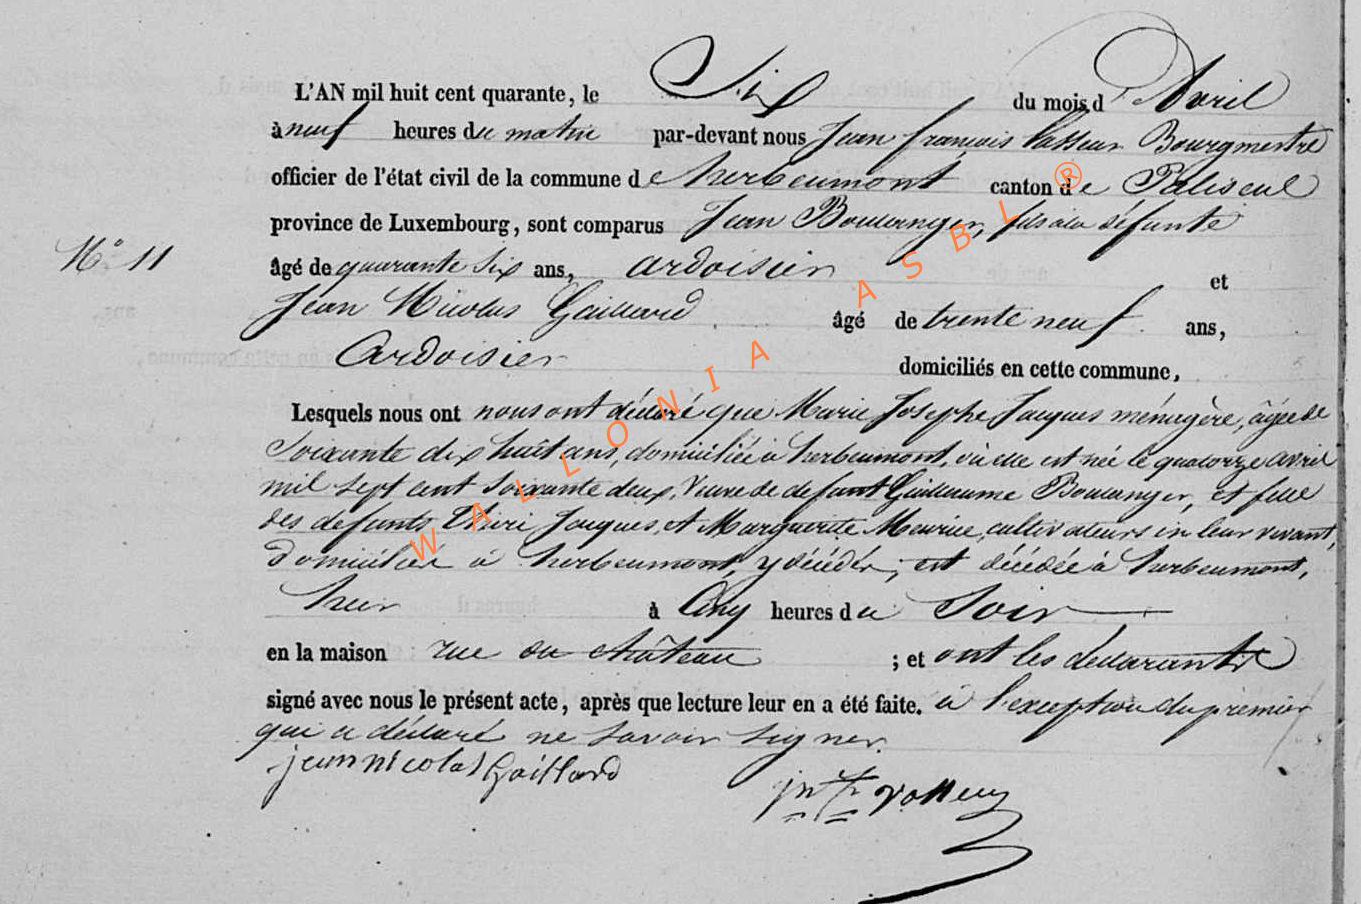 L'AN mil huit cent quarante, le Six du mois d'Avril
à neuf heures du matin par-devant nous Jean françois Vasseur Bourgmestre
officier de l'état civil de la commune de herbeumont canton de Paliseul
province de Luxembourg, sont comparus Jean Boulanger, fils à la défunte
N° 11
âgé de quarante six ans, ardoisier et
Jean Nicolas Gaillard âgé de trente neuf ans,
Ardoisier domiciliés en cette commune,
Lesquels nous ont nous ont déclaré que Marie Josephe Jacques ménagère, âgée de
Soixante dix huit ans, domiciliée à herbeumont, où elle est née le quatorze avril
mil sept cent soixante deux, Veuve de defunt Guillaume Boulanger, et fille
des defunts Jacques, et Marguerite Meurice, cultivateurs en leur vivant,
domiciliés à herbeumont, y décédés, est décédée à herbeumont,
hier à Cinq heures du Soir
en la maison rue du château ; et ont les déclarants
signé avec nous le présent acte, après que lecture leur en a été faite. à l'exception du premier
qui a déclaré ne savoir signer.
jean nicolas Gaillard
jn fr vasseur
WALLONIA ASBL ®